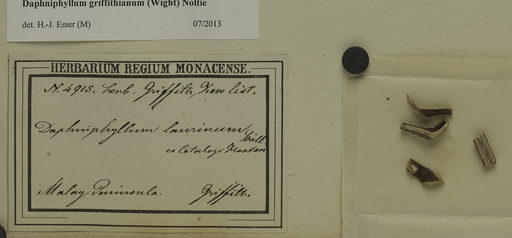 Daphniphyllum griffithianum (Wight) Noltie
det. H.-J. Esser (M) 07/2013
HERBARIUM REGIUM MONACENSE.
N. 4915. herb. Griffith, Kew list.
Daphniphyllum laurinum
Malay Peninsula. Griffith.